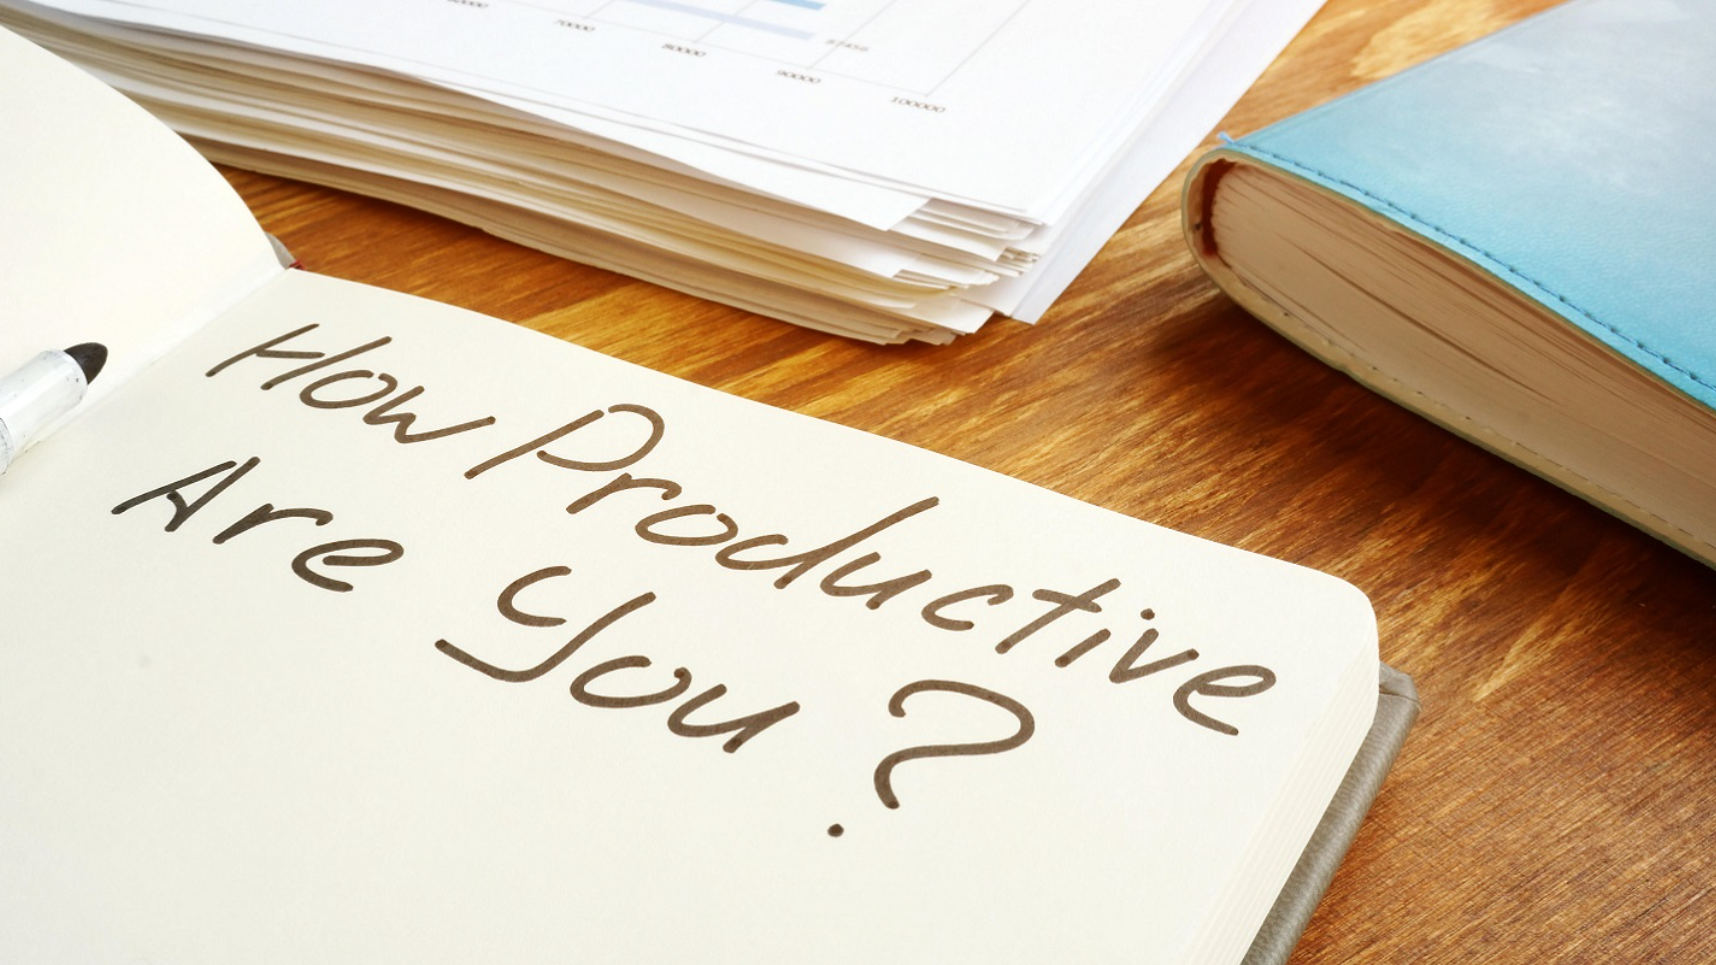 70000
80000
90000
100000
How Productive
Are You?